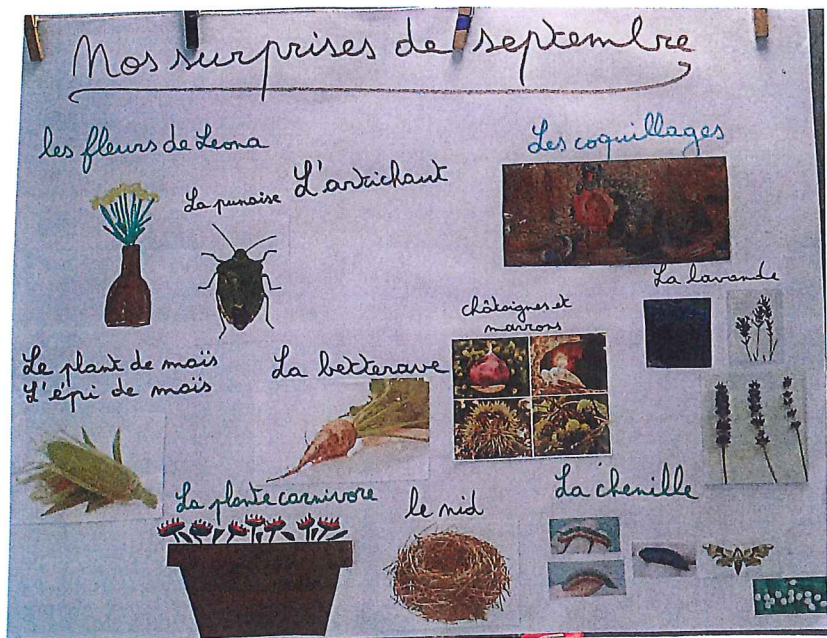 Nos surprises de septembre
les fleurs de Leona
La punaise
L'artichaut
Les coquillages
La lavande
châtaignes et
marrons
Le plant de maïs
L'épi de maïs
La betterave
La plante carnivore
le nid
La chenille